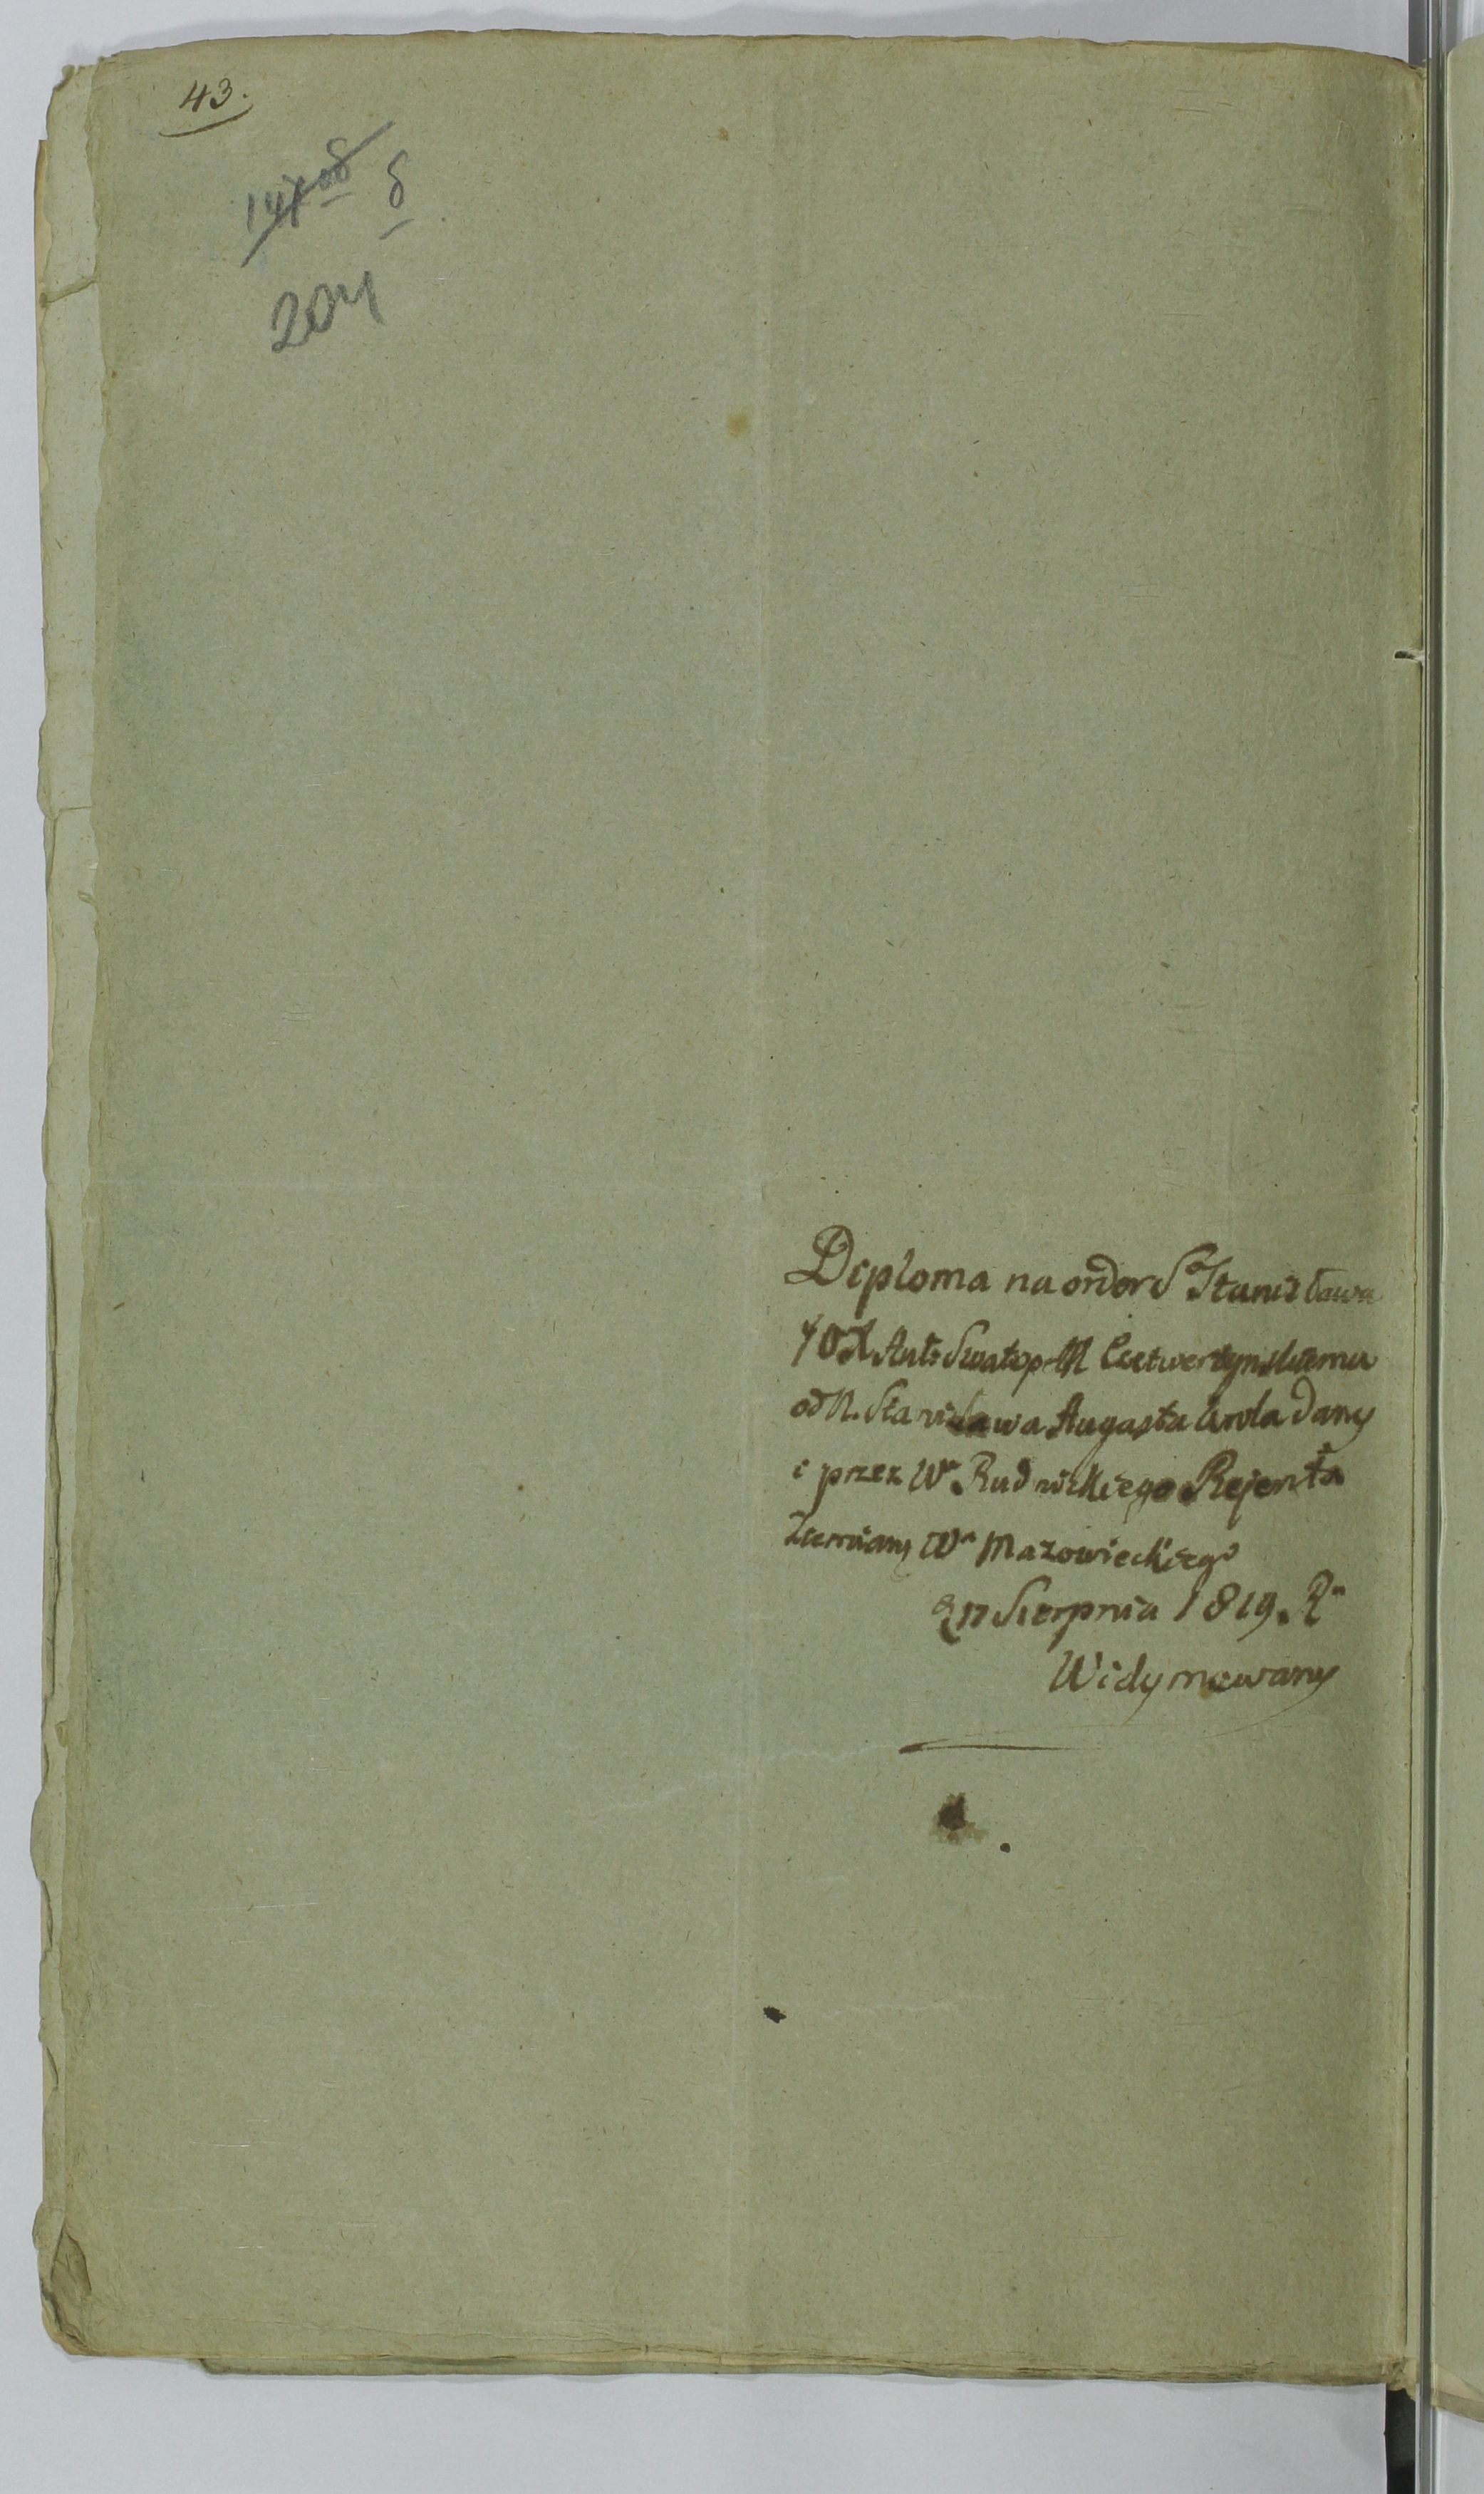 43.
147 об 8
204
Diploma na order Sᵒ Stanisława
JOX Ant: Swatop: Czetwertynskiemu
od N. Stanisława Augusta Krola dany
i przez Wᵒ Rudnickiego Rejenta
Ziemiang Wᵃ Mazowieckiego
Sierpnia 1819. Rᵒ
Widymowany